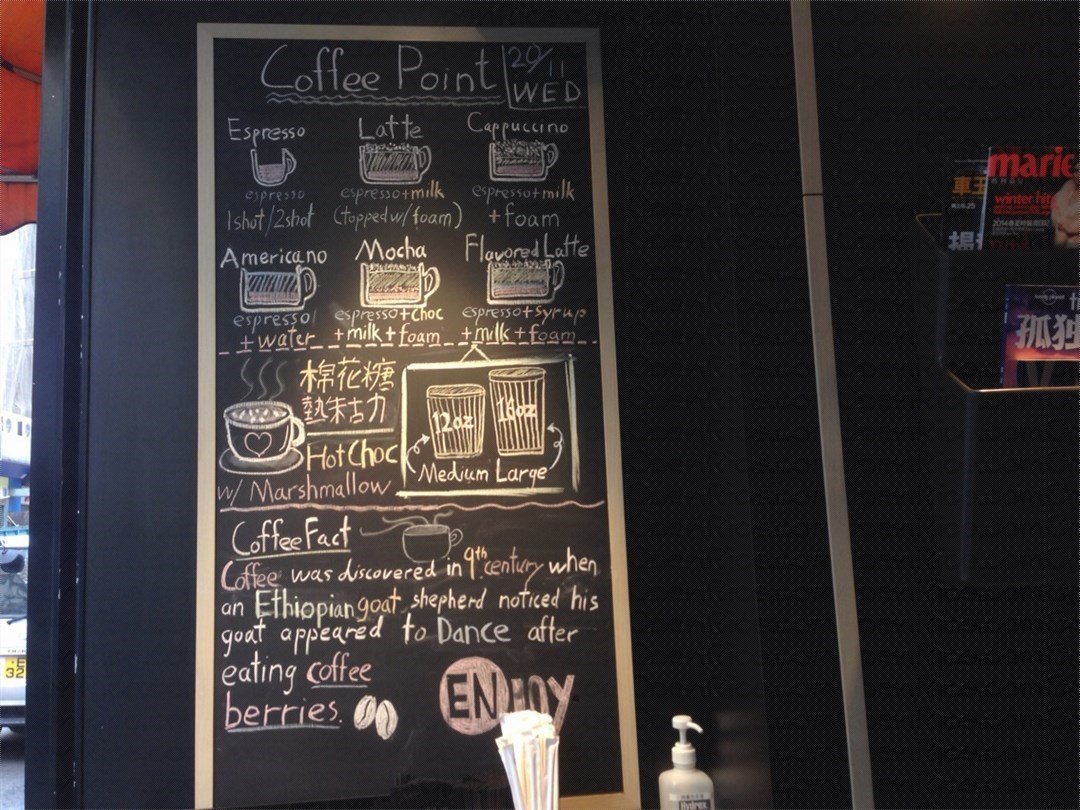 Coffee Point
20/11
WED
Espresso
espresso
1shot/2shot
Latte
espresso+milk
(topped w/ foam)
Cappuccino
espresso+milk
+foam
Americano
espresso
+water
Mocha
espresso+choc
+milk+foam
Flavored Latte
espresso+syrup
+milk+foam
棉花糖
熱朱古力
Hot Choc
w/ Marshmallow
12oz
16oz
Medium Large
Coffee Fact
Coffee was discovered in 9th century when
an Ethiopian goat shepherd noticed his
goat appeared to Dance after
eating coffee
berries.
ENJOY
車王
marie
winter hits
lonely planet
孤独
Hydrex